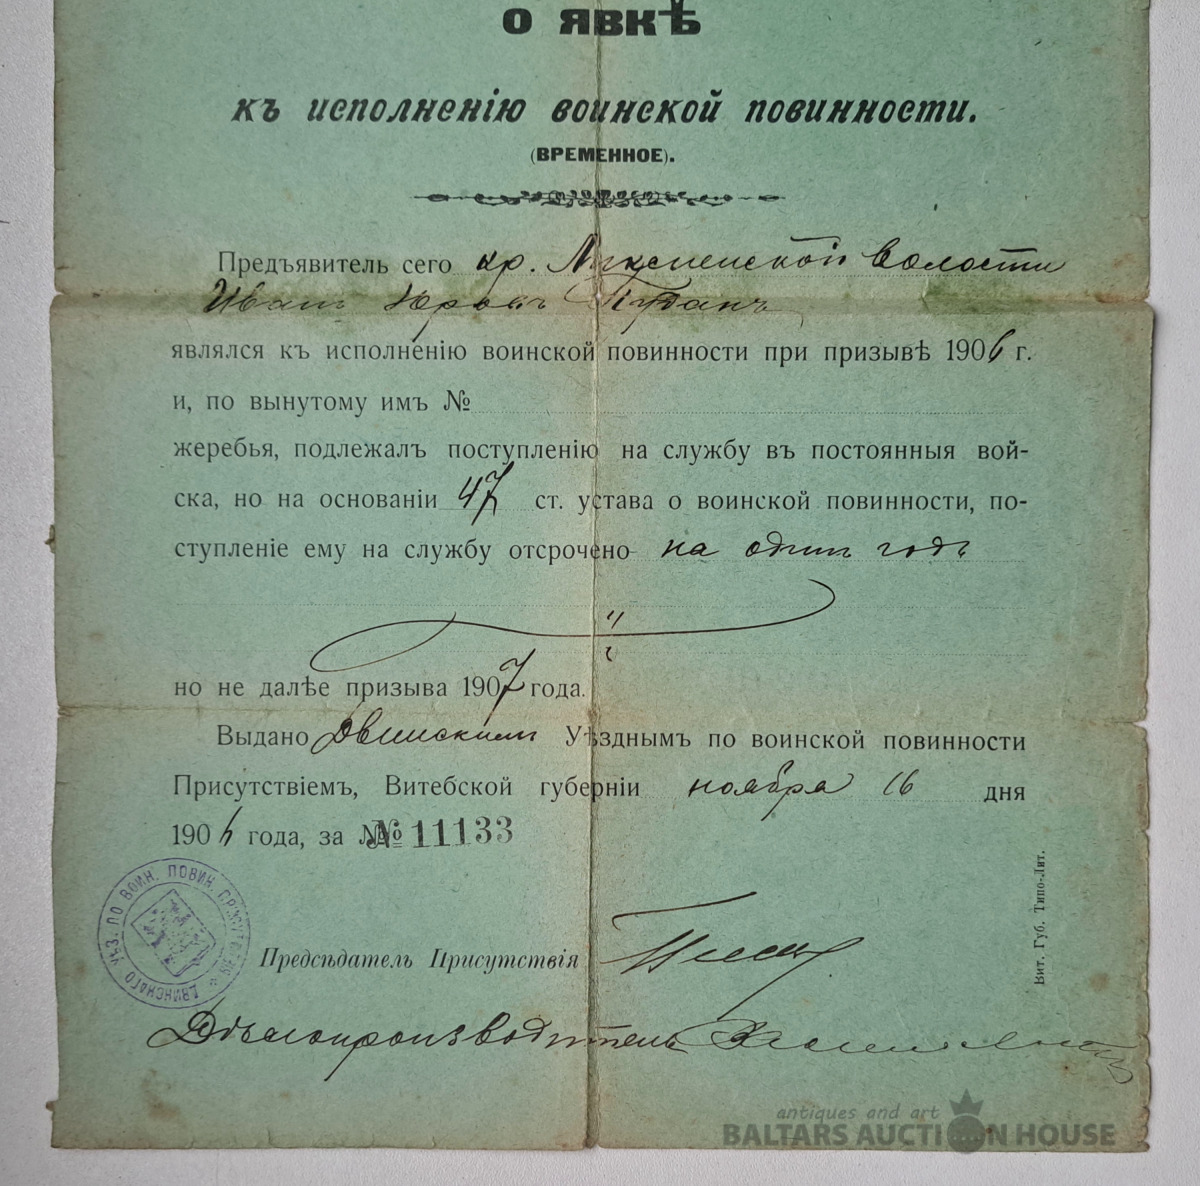 О ЯВКѢ
къ исполненію воинской повинности.
(ВРЕМЕННОЕ).
Предъявитель сего кр. волости
Иванъ Юровъ
являлся къ исполненію воинской повинности при призывѣ 1906 г.
и, по вынутому имъ №
жеребья, подлежалъ поступленію на службу въ постоянныя вой-
ска, но на основаніи 47 ст. устава о воинской повинности, по-
ступленіе ему на службу отсрочено на одинъ годъ
но не далѣе призыва 1907 года.
Выдано Двинскимъ Уѣзднымъ по воинской повинности
Присутствіемъ, Витебской губерніи ноября 16 дня
1906 года, за № № 11133
ДВИНСКАГО УѢЗ. ПО ВОИН. ПОВИН.
Предсѣдатель Присутствія
Дѣлопроизводитель
Вит. Губ. Типо-Лит.
antiques and art
BALTARS AUCTION HOUSE